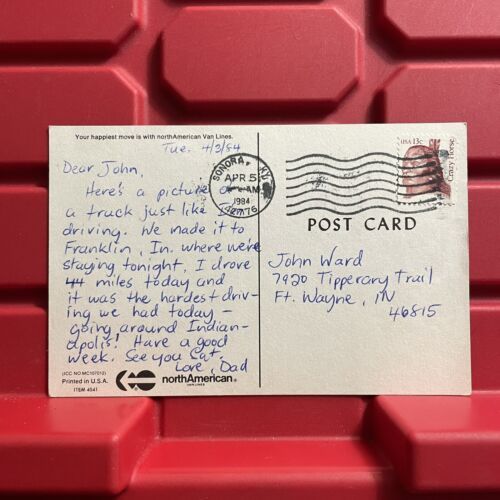 Your happiest move is with northAmerican Van Lines.
Tue. 4/3/84
Dear John,
Here's a picture of
a truck just like I'm
driving. We made it to
Franklin, In. where we're
staying tonight. I drove
44 miles today and
it was the hardest driv-
ing we had today -
going around Indian-
apolis! Have a good
week. See you Sat.
Love, Dad
(ICC NO.MC107012)
Printed in U.S.A.
ITEM 4541
northAmerican®
VAN LINES
SONORA, KY
APR 5
AM
1984
42776
USA 13c
Crazy Horse
POST CARD
John Ward
7920 Tipperary Trail
Ft. Wayne, IN
46815